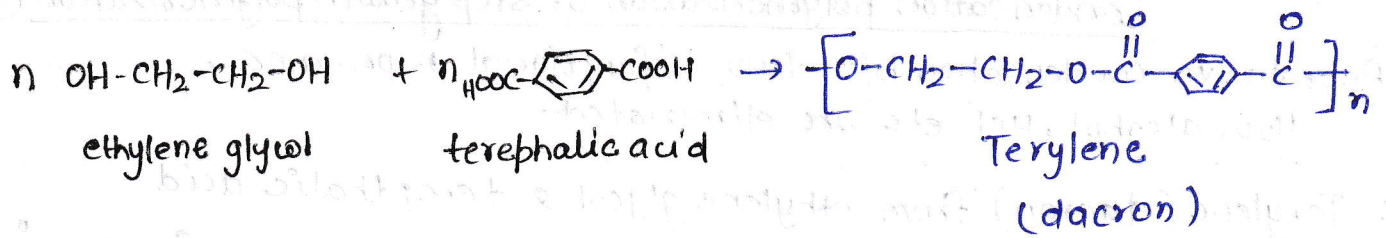 n OH-CH₂-CH₂-OH + n HOOC- -COOH → [O-CH₂-CH₂-O-C(=O)- -C(=O)]n
ethylene glycol terephalic acid Terylene
(dacron)